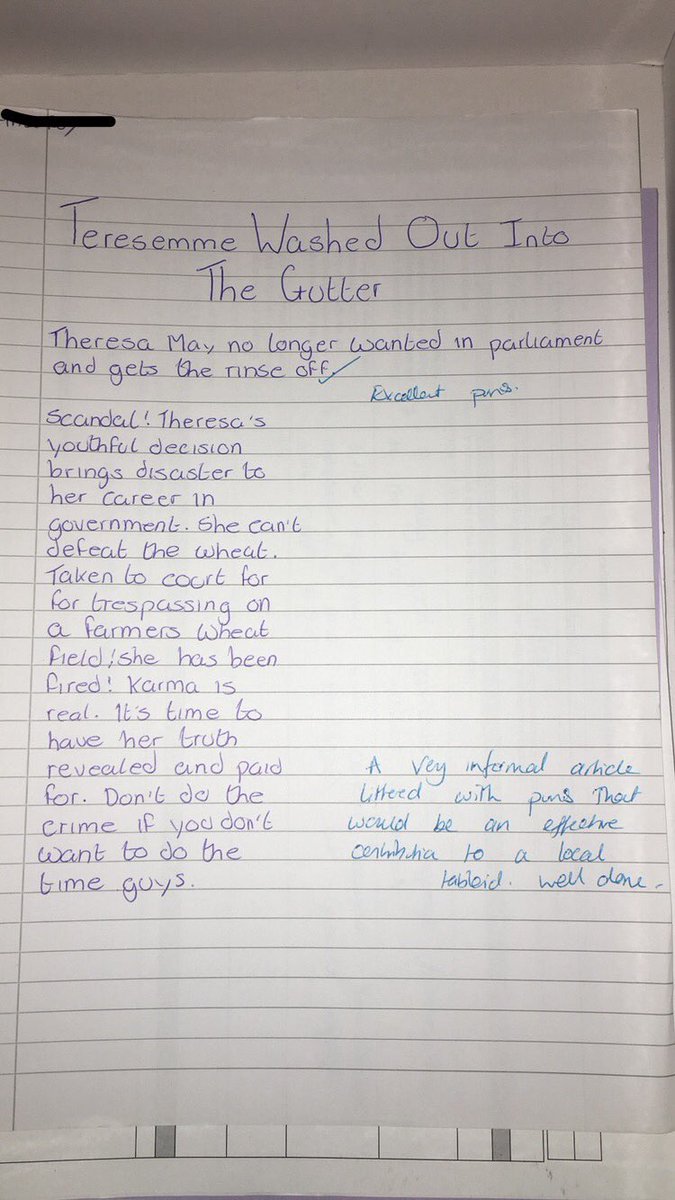 Teresemme Washed Out Into
The Gutter
Theresa May no longer wanted in parliament
and gets the rinse off.
Excellent puns.
Scandal! Theresa's
youthful decision
brings disaster to
her career in
government. She can't
defeat the wheat.
Taken to court for
for trespassing on
a farmers wheat
field; she has been
fired! Karma is
real. It's time to
have her truth
revealed and paid
for. Don't do the
crime if you don't
want to do the
time guys.
A vey informal article
littered with puns that
would be an effective
to a local
tabloid. well done.